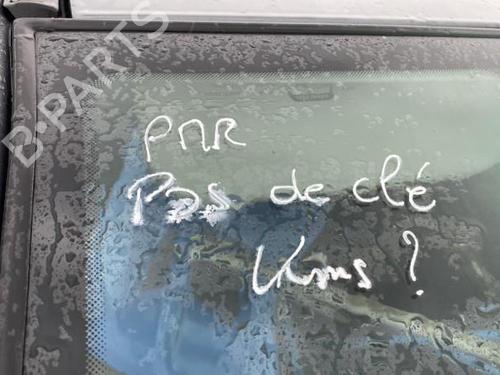 B-PARTS
PMR
Pas de clé
Kms ?